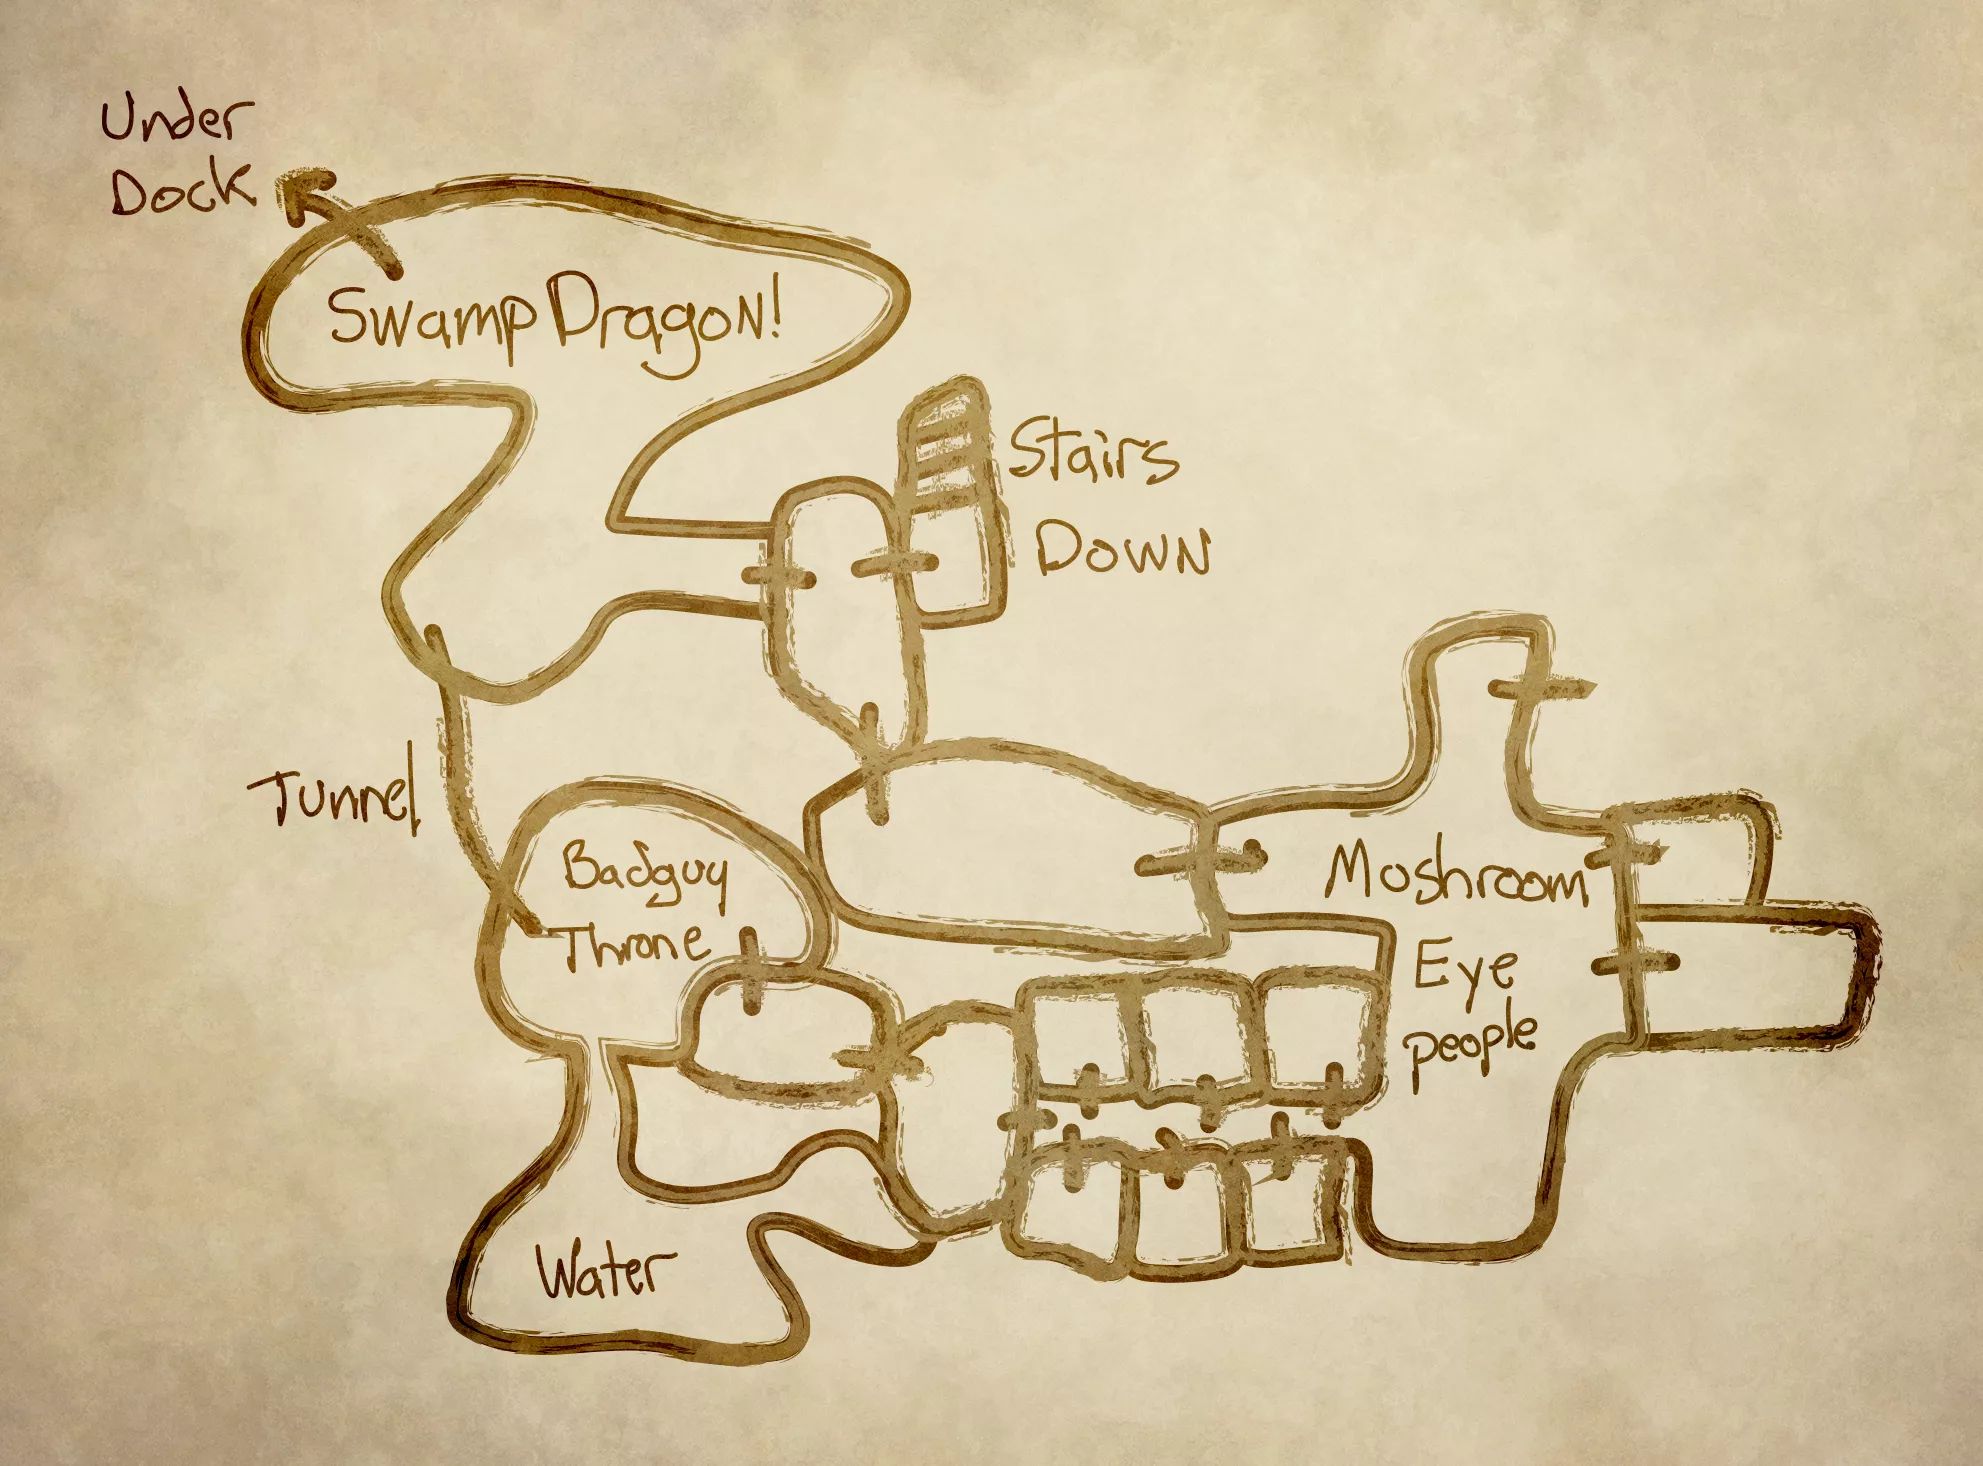 Under
Dock
Swamp Dragon!
Stairs
Down
Tunnel
Badguy
Throne
Moshroom
Eye
people
Water